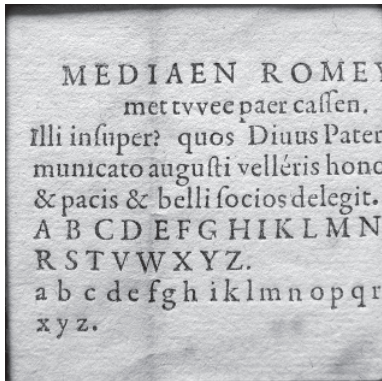 MEDIAEN ROMEY
met tvvee paer caſſen.
Illi inſuper? quos Diuus Pater
municato auguſti velléris hono
& pacis & belli ſocios delegit.
A B C D E F G H I K L M N
R S T V W X Y Z.
a b c d e f g h i k l m n o p q r
x y z.